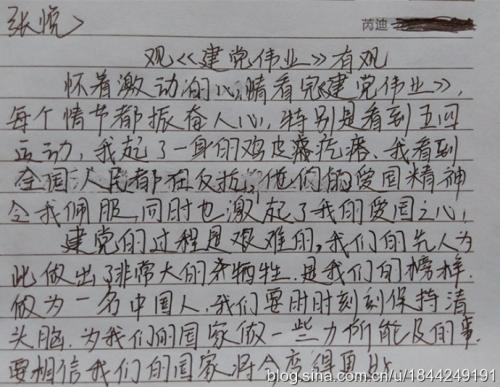 张悦
芮迪
观《建党伟业》有观
怀着激动的心情看完《建党伟业》,
每个情节都振奋人心,特别是看到五四
运动,我起了一身的鸡皮疙瘩、我看到
全国人民都在反抗,他们的爱国精神
令我佩服,同时也激起了我的爱国之心,
建党的过程是艰难的,我们的先人为
此做出了非常大的牺牲.是我们的榜样.
做为一名中国人,我们要时时刻刻保持清
头脑.为我们的国家做一些力所能及的事.
要相信我们的国家将会变得更
blog.sina.com.cn/u/1844249191